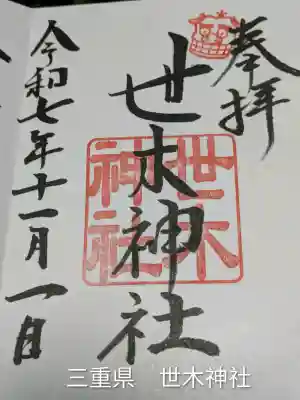 奉拝
世木神社
世木
神社
令和七年十一月一日
三重県 世木神社